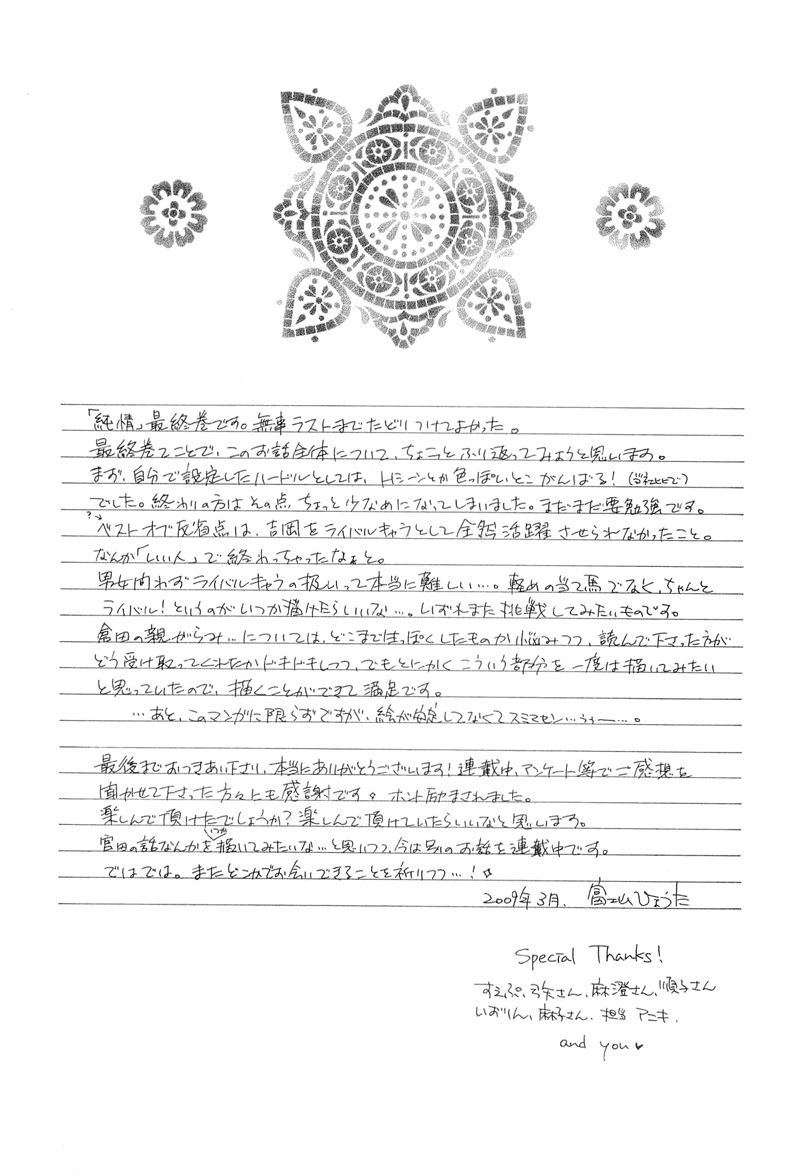 「純情」最終巻です。無事ラストまでたどりつけてよかった。
最終巻てことで、このお話全体について、ちょこっとふり返ってみようと思います。
まず、自分で設定したハードルとしては、Hシーンとか色っぽいとこがんばる!(当社比で)
でした。終わりの方はその点、ちょっと少なめになってしまいました。まだまだ要勉強です。
?→ベストオブ反省点は、吉岡をライバルキャラとして全然活躍させられなかったこと。
なんか「いい人」で終わっちゃったなぁと。
男女問わずライバルキャラの扱いって本当に難しい…。軽めの当て馬でなく、ちゃんと
ライバル!というのがいつか描けたらいいな…。いずれまた挑戦してみたいものです。
倉田の親がらみ…については、どこまでほっぽくしたものか悩みつつ、読んで下さった方が
どう受け取ってくれたかドキドキしつつ、でもとにかくこういう部分を一度は描いてみたい
と思っていたので、描くことができて満足です。
…あと、このマンガに限らずですが、絵が安定してなくてスミマセン…うぅー…。
最後までおつきあい下さり、本当にありがとうございます!連載中、アンケート等でご感想を
聞かせて下さった方々にも感謝です。ホント励まされました。
楽しんで頂けたでしょうか?楽しんで頂けていたらいいなと思います。
宮田の話なんかをいつか描いてみたいな…と思いつつ、今は別のお話を連載中です。
ではでは。またどこかでお会いできることを祈りつつ…!☆
2009年3月. 富士山ひょうた
Special Thanks!
すえぷ、弓矢さん、麻澄さん、順子さん
いおりん、麻子さん、担当アニキ.
and you♥